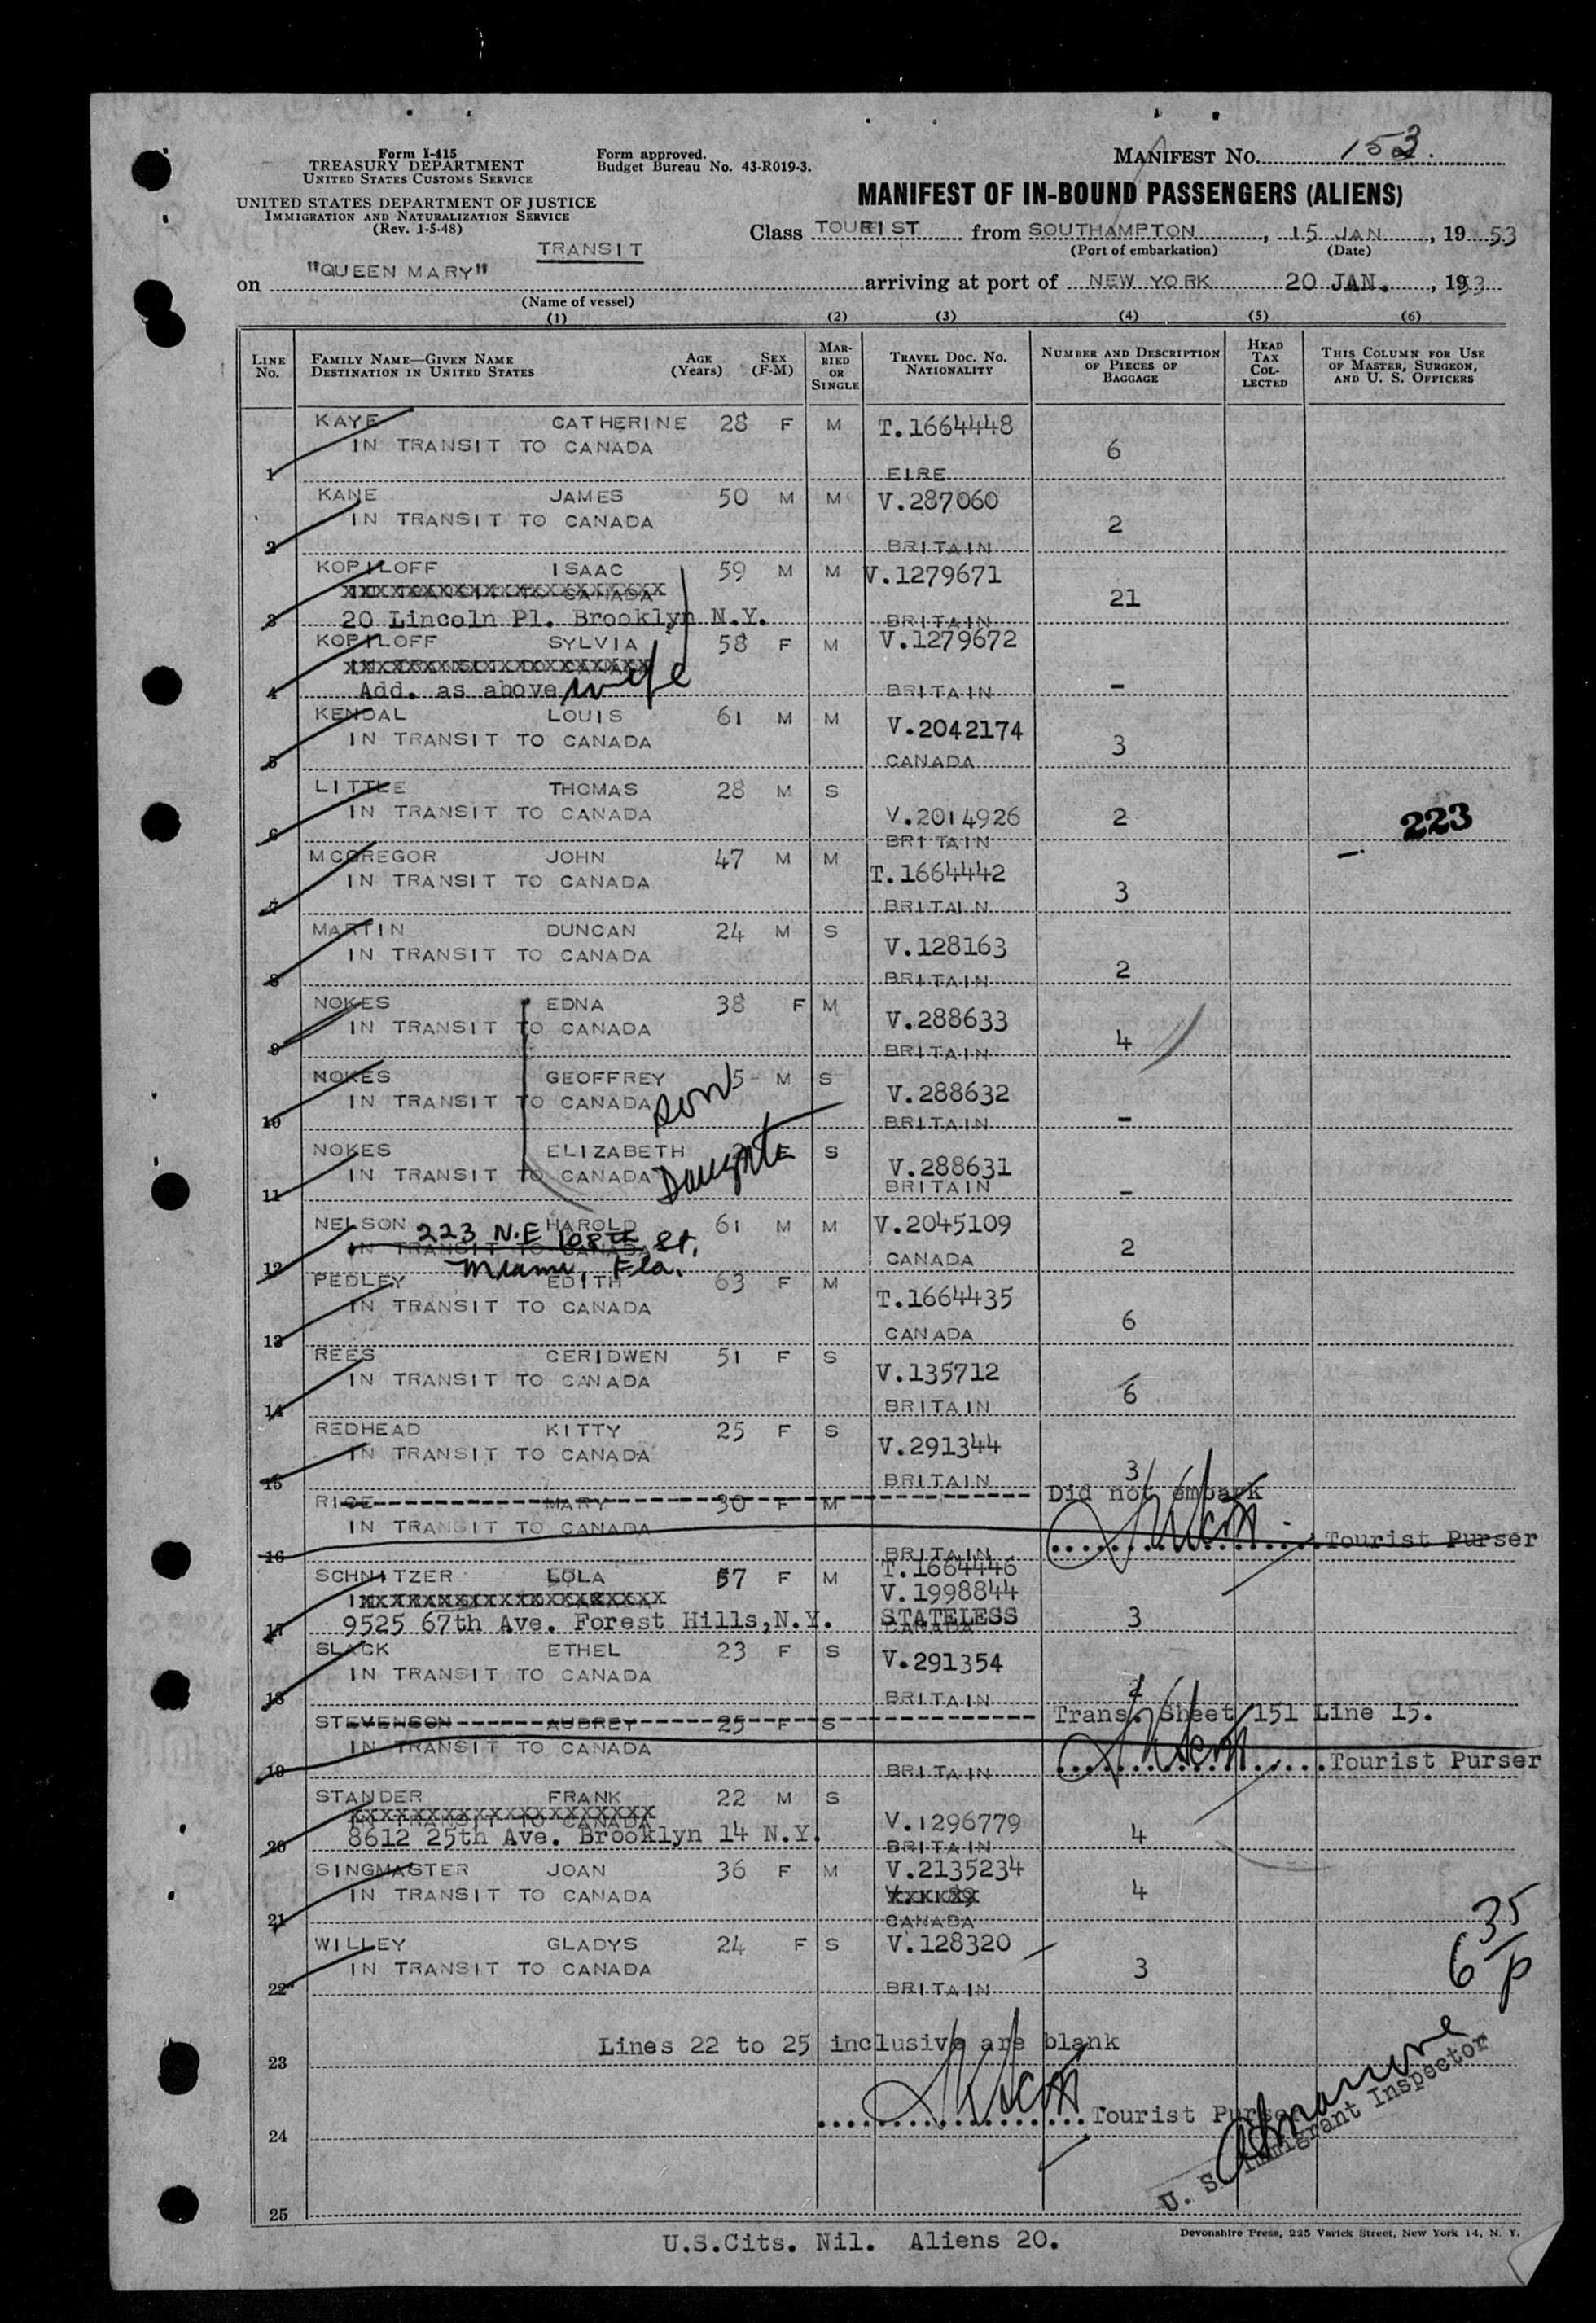 Form I-415
TREASURY DEPARTMENT
UNITED STATES CUSTOMS SERVICE
UNITED STATES DEPARTMENT OF JUSTICE
IMMIGRATION AND NATURALIZATION SERVICE
(Rev. 1-5-48)
Form approved.
Budget Bureau No. 43-R019-3.
MANIFEST NO. 153.
MANIFEST OF IN-BOUND PASSENGERS (ALIENS)
Class TOURIST from SOUTHAMPTON, 15 JAN, 19 53
(Port of embarkation) (Date)
TRANSIT
on "QUEEN MARY" arriving at port of NEW YORK 20 JAN., 1953
(Name of vessel)
(1) (2) (3) (4) (5) (6)
LINE NO. FAMILY NAME—GIVEN NAME DESTINATION IN UNITED STATES AGE (Years) SEX (F-M) MARRIED OR SINGLE TRAVEL DOC. NO. NATIONALITY NUMBER AND DESCRIPTION OF PIECES OF BAGGAGE HEAD TAX COLLECTED THIS COLUMN FOR USE OF MASTER, SURGEON, AND U. S. OFFICERS
KAYE CATHERINE 28 F M T.1664448
IN TRANSIT TO CANADA 6
1 EIRE
KANE JAMES 50 M M V.287060
IN TRANSIT TO CANADA 2
2 BRITAIN
KOPILOFF ISAAC 59 M M V.1279671
21
3 20 Lincoln Pl. Brooklyn N.Y. BRITAIN
KOPILOFF SYLVIA 58 F M V.1279672
4 Add. as above wife BRITAIN -
KENDAL LOUIS 61 M M V.2042174
IN TRANSIT TO CANADA 3
5 CANADA
LITTLE THOMAS 28 M S
IN TRANSIT TO CANADA V.2014926 2 223
6 BRITAIN
MCGREGOR JOHN 47 M M T.1664442
IN TRANSIT TO CANADA 3
7 BRITAIN
MARTIN DUNCAN 24 M S V.128163
IN TRANSIT TO CANADA 2
8 BRITAIN
NOKES EDNA 38 F M V.288633
IN TRANSIT TO CANADA 4
9 BRITAIN
NOKES GEOFFREY 5 M S V.288632
IN TRANSIT TO CANADA son
10 BRITAIN -
NOKES ELIZABETH F S V.288631
IN TRANSIT TO CANADA Daughter
11 BRITAIN -
NELSON HAROLD 61 M M V.2045109
IN TRANSIT TO CANADA 223 N.E 108th St. 2
12 Miami, Fla. CANADA
PEDLEY EDITH 63 F M T.1664435
IN TRANSIT TO CANADA 6
13 CANADA
REES CERIDWEN 51 F S V.135712
IN TRANSIT TO CANADA 6
14 BRITAIN
REDHEAD KITTY 25 F S V.291344
IN TRANSIT TO CANADA 3
15 BRITAIN
RICE MARY 30 F M Did not embark
IN TRANSIT TO CANADA Tourist Purser
16 BRITAIN
SCHNITZER LOLA 57 F M T.1664446
V.1998844
17 9525 67th Ave. Forest Hills, N.Y. STATELESS CANADA 3
SLACK ETHEL 23 F S V.291354
IN TRANSIT TO CANADA
18 BRITAIN 2
STEVENSON AUDREY 25 F S Trans. Sheet 151 Line 15.
IN TRANSIT TO CANADA Tourist Purser
19 BRITAIN
STANDER FRANK 22 M S
IN TRANSIT TO CANADA V.1296779
20 8612 25th Ave. Brooklyn 14 N.Y. BRITAIN 4
SINGMASTER JOAN 36 F M V.2135234
IN TRANSIT TO CANADA 4
21 CANADA
WILLEY GLADYS 24 F S V.128320
IN TRANSIT TO CANADA 3
22 BRITAIN
6 35/p
Lines 22 to 25 inclusive are blank
23
Tourist Purser
24
U. S. Immigrant Inspector
25
U.S.Cits. Nil. Aliens 20.
Devonshire Press, 225 Varick Street, New York 14, N. Y.